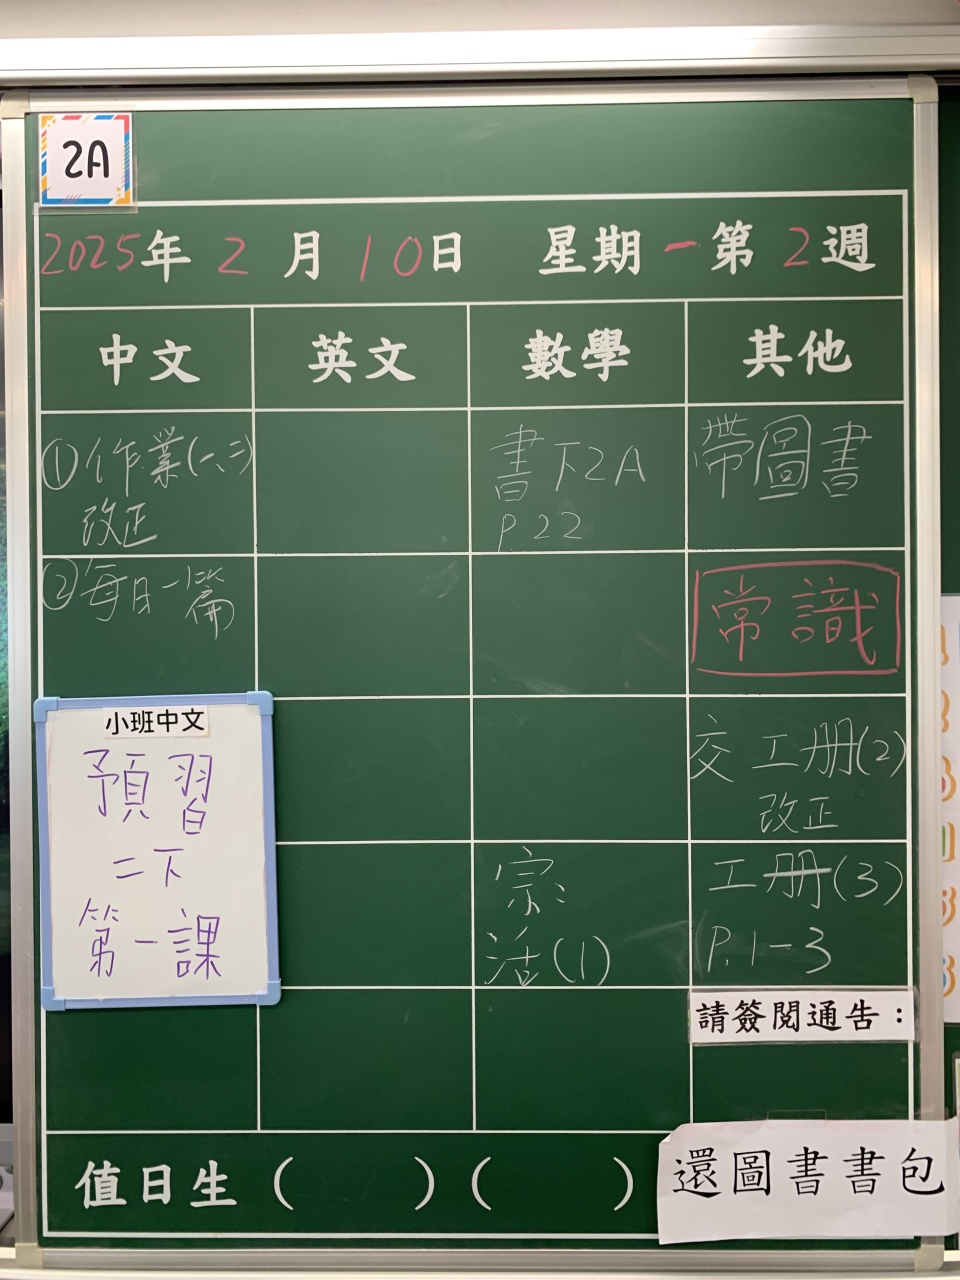 2A
2025年 2 月 10日 星期一第2週
中文 英文 數學 其他
①作業(一、二)
改正
②每日一篇
小班中文
預習
二下
第一課
書下2A
P.22
宗:
活(1)
帶圖書
常識
交工册(2)
改正
工册(3)
P.1-3
請簽閱通告：
值日生 ( ) ( )
還圖書書包